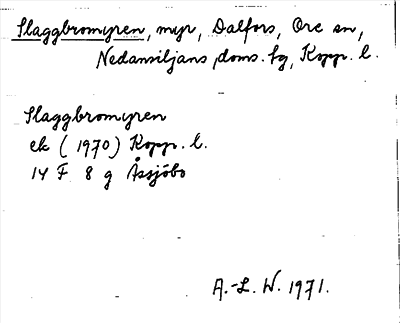 Slaggbromyren, myr, Dalfors, Ore sn,
Nedansiljans doms.hg, Kopp. l.
Slaggbromyren
ek (1970) Kopp. l.
14 F 8 g Åssjöbo
A.-L. W. 1971.